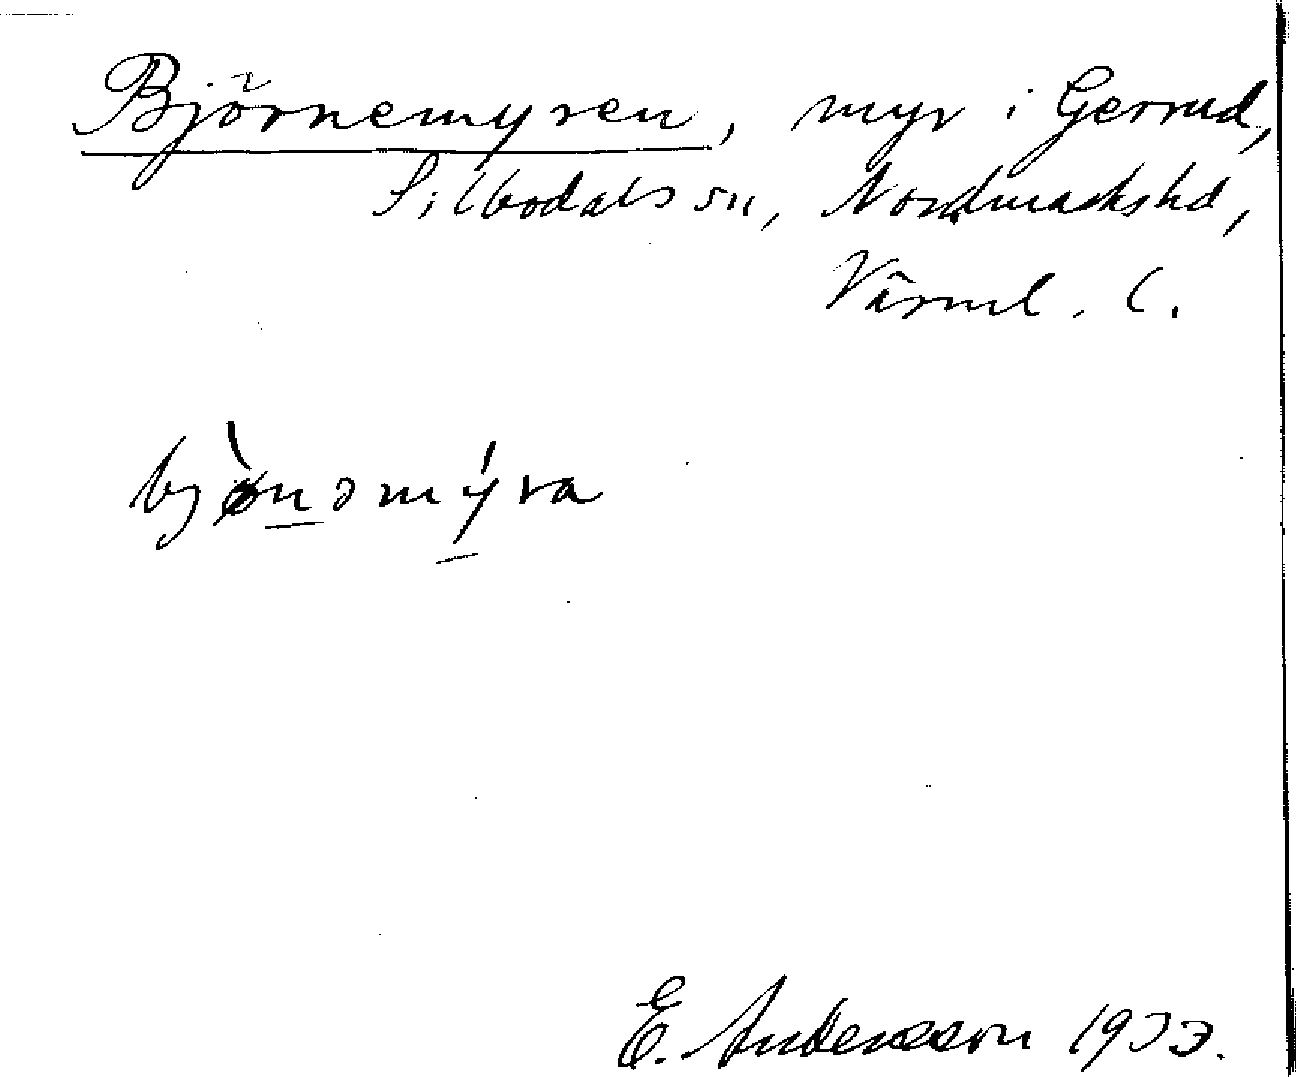 Björnemyren, myr i Gerrud,
Silbodals sn, Nordmarks hd,
Värml. l.
bjø̀nəmýra
E. Andersson 1933.